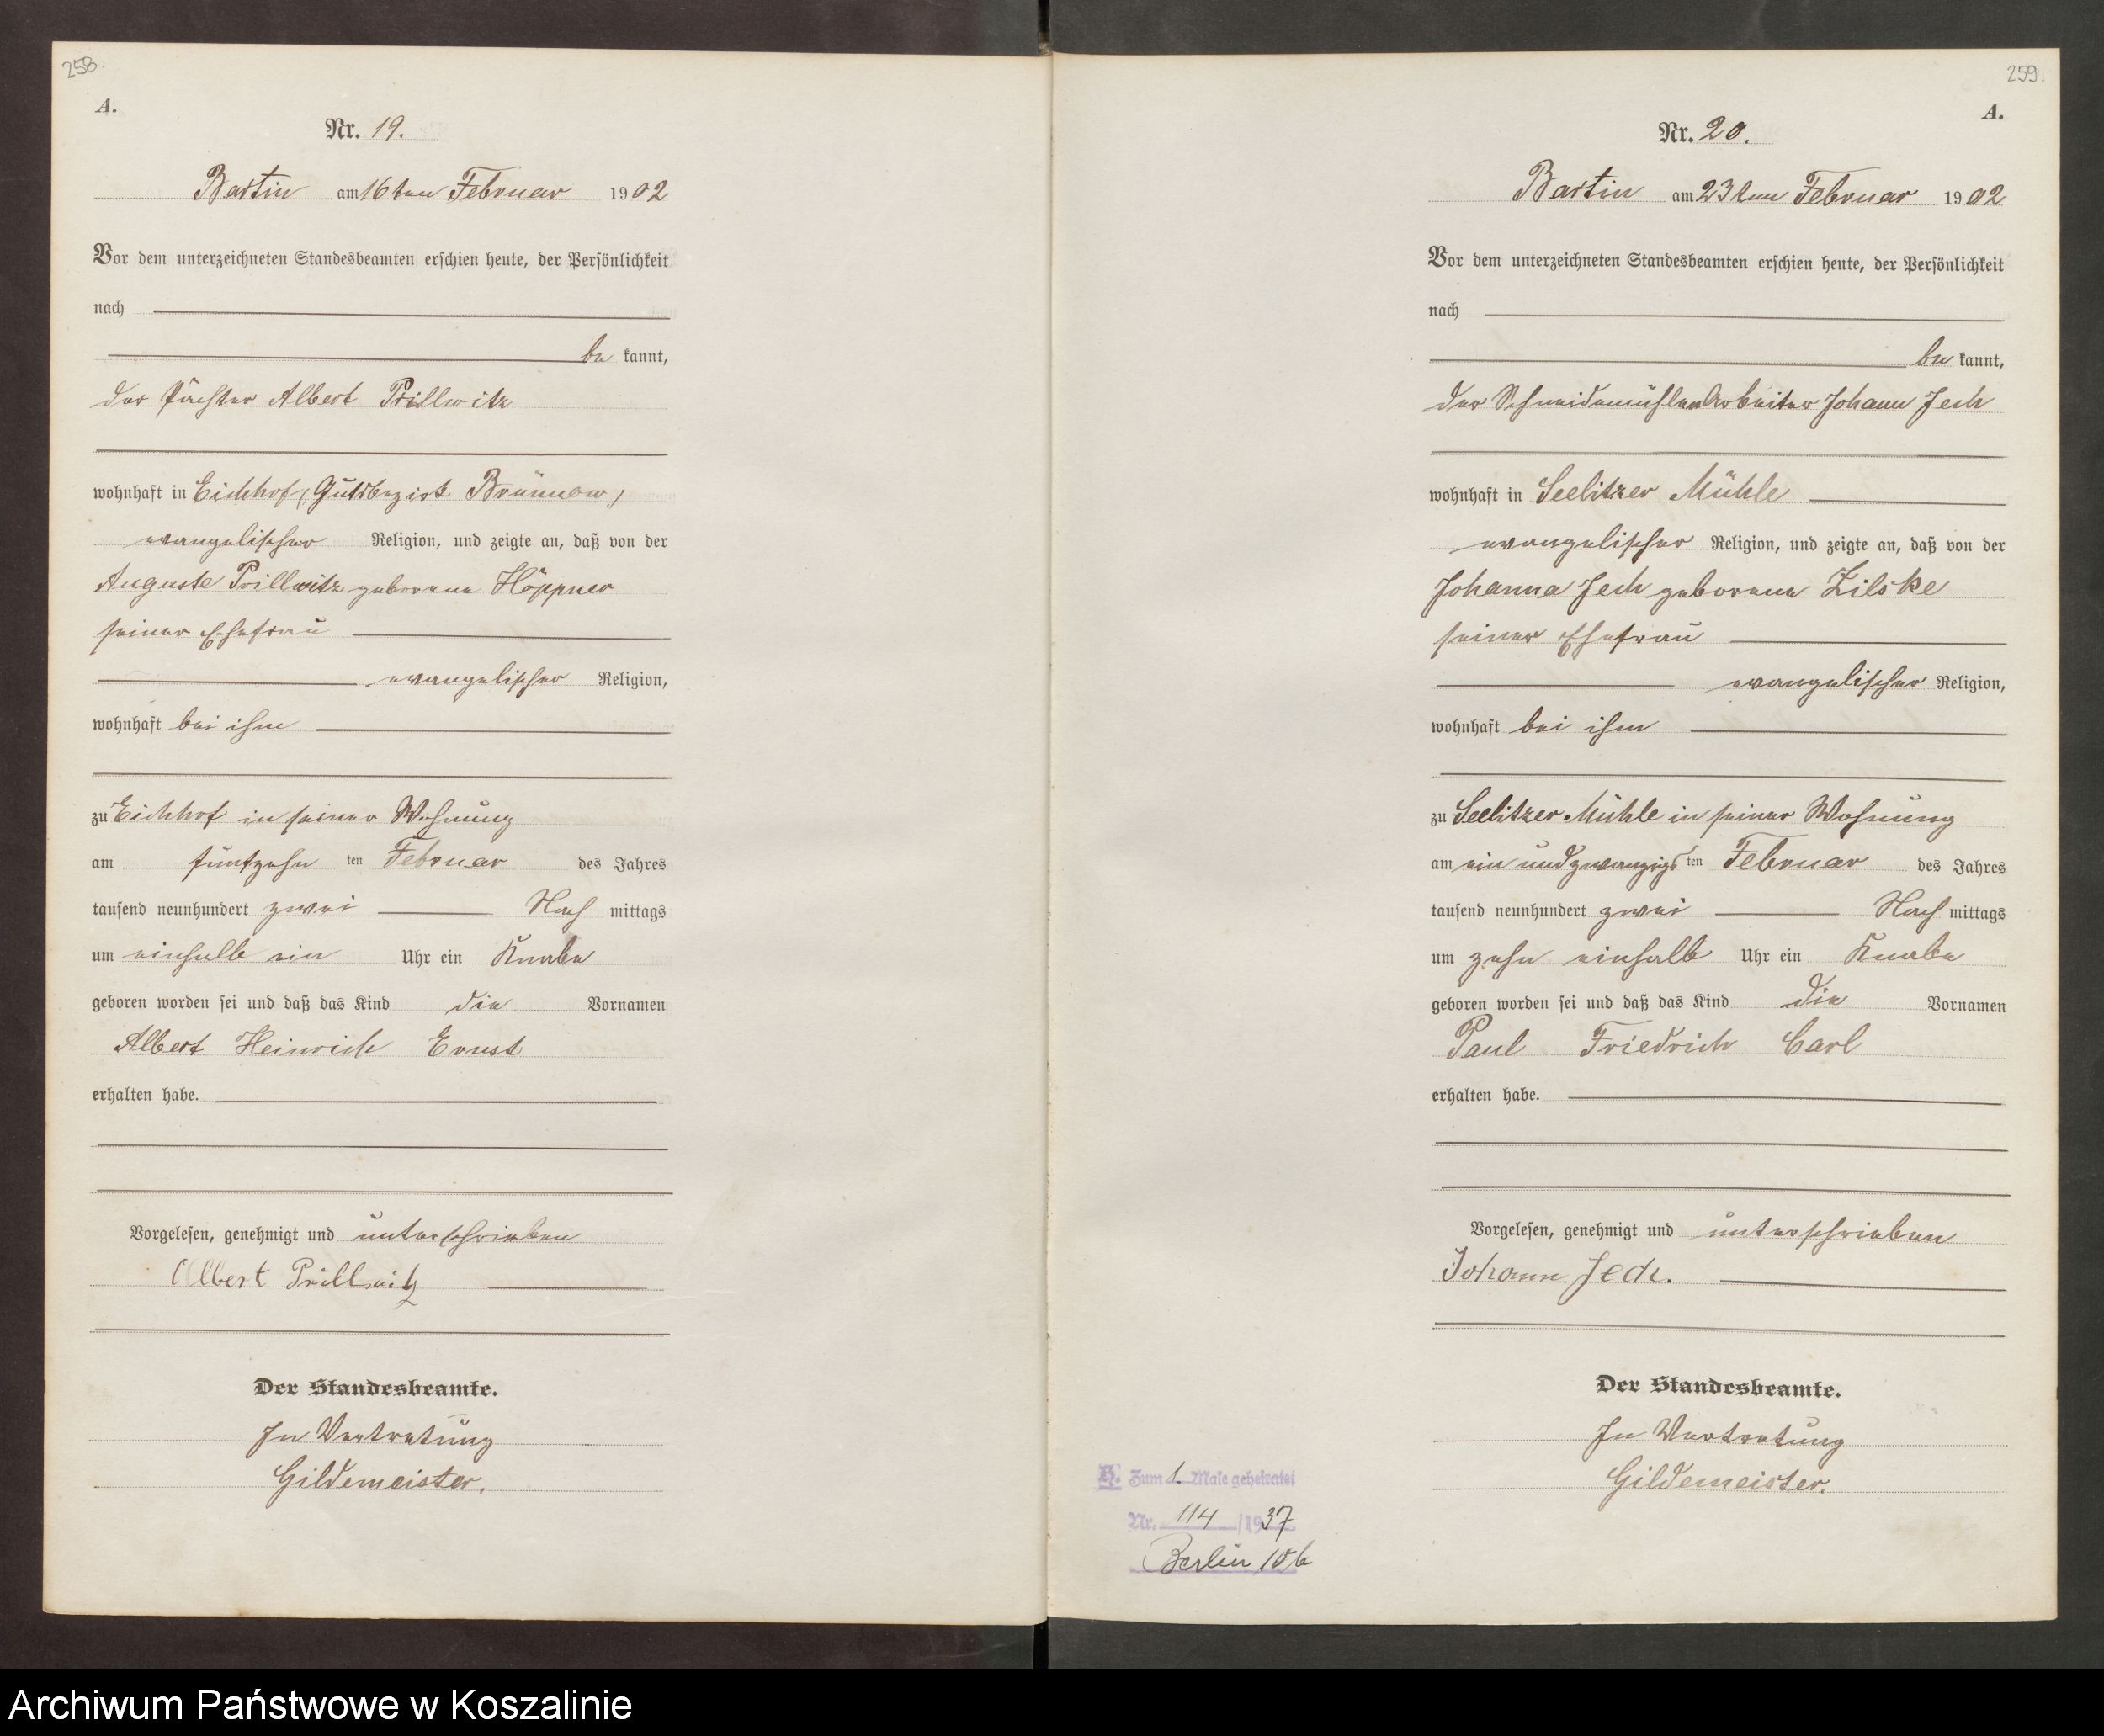 258.
A.
Nr. 19.
Bartin am 16ten Februar 1902
Vor dem unterzeichneten Standesbeamten erschien heute, der Persönlichkeit
nach
be kannt,
der Pächter Albert Prillwitz
wohnhaft in Eichhof (Gutsbezirk Brünnow)
evangelischer Religion, und zeigte an, daß von der
Auguste Prillwitz geborene Höppner
seiner Ehefrau
evangelischer Religion,
wohnhaft bei ihm
zu Eichhof in seiner Wohnung
am fünfzehn ten Februar des Jahres
tausend neunhundert zwei Nach mittags
um einhalb ein Uhr ein Knabe
geboren worden sei und daß das Kind die Vornamen
Albert Heinrich Ernst
erhalten habe.
Vorgelesen, genehmigt und unterschrieben
Albert Prillwitz
Der Standesbeamte.
In Vertretung
Gildemeister.
259.
A.
Nr. 20.
Bartin am 23ten Februar 1902
Vor dem unterzeichneten Standesbeamten erschien heute, der Persönlichkeit
nach
be kannt,
der Schneidemühlenarbeiter Johann Jech
wohnhaft in Seelitzer Mühle
evangelischer Religion, und zeigte an, daß von der
Johanna Jech geborene Zilske
seiner Ehefrau
evangelischer Religion,
wohnhaft bei ihm
zu Seelitzer Mühle in seiner Wohnung
am ein und zwanzigs ten Februar des Jahres
tausend neunhundert zwei Nach mittags
um zehn einhalb Uhr ein Knabe
geboren worden sei und daß das Kind die Vornamen
Paul Friedrich Carl
erhalten habe.
Vorgelesen, genehmigt und unterschrieben
Johann Jech.
Der Standesbeamte.
In Vertretung
Gildemeister.
H. Zum 1. Male geheiratet
Nr. 114 /1937
Berlin 10b
Archiwum Państwowe w Koszalinie